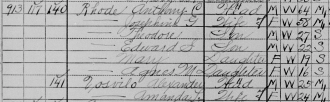 913 17 140 Rhode Anthony C Head M W 64 M
Josephine F Wife F W 58 M
Theodore Son M W 27 S
Edward S Son M W 22 S
Mary Daughter F W 19 S
Agnes M Daughter F W 16 S
141 Alexander Head M W
Amanda Wife F W 24 M